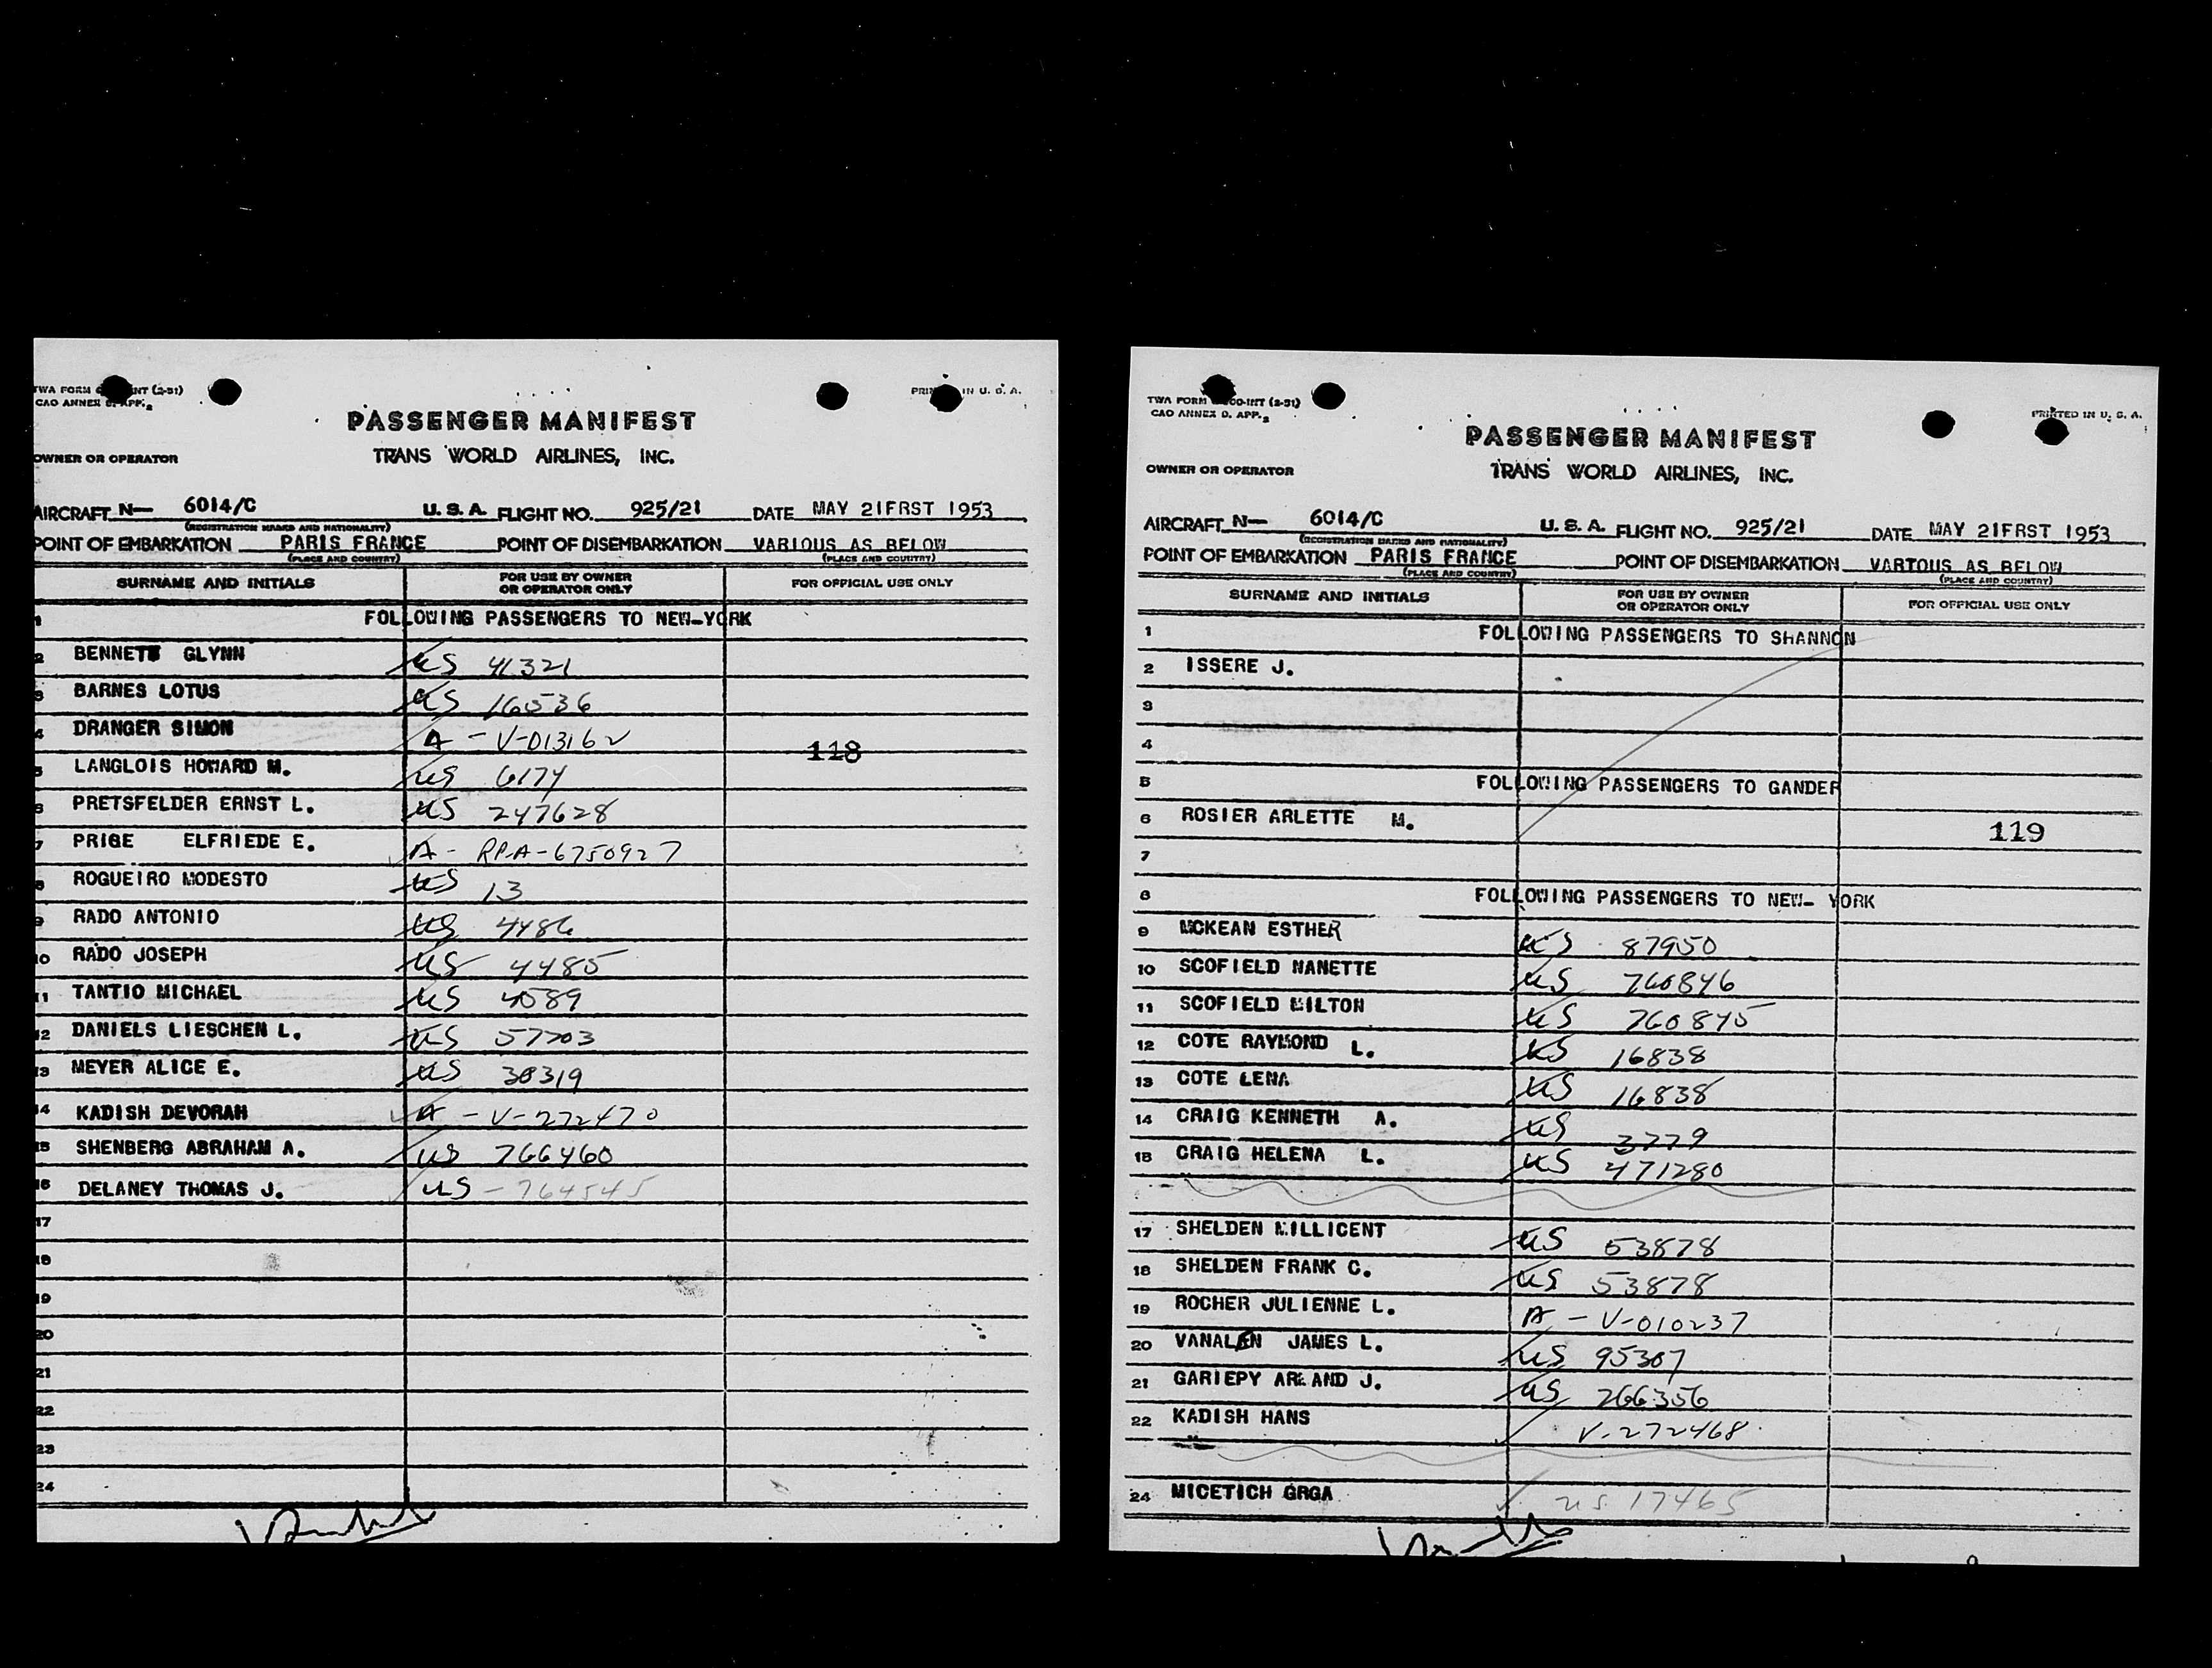 TWA FORM NT (2-51)
CAO ANNEX D. APP. 2
PRINTED IN U. S. A.
PASSENGER MANIFEST
OWNER OR OPERATOR TRANS WORLD AIRLINES, INC.
AIRCRAFT N— 6014/C U. S. A. FLIGHT NO. 925/21 DATE MAY 21FRST 1953
(REGISTRATION MARKS AND NATIONALITY)
POINT OF EMBARKATION PARIS FRANCE POINT OF DISEMBARKATION VARIOUS AS BELOW
(PLACE AND COUNTRY) (PLACE AND COUNTRY)
SURNAME AND INITIALS FOR USE BY OWNER OR OPERATOR ONLY FOR OFFICIAL USE ONLY
1 FOLLOWING PASSENGERS TO NEW-YORK
2 BENNETT GLYNN US 41321
3 BARNES LOTUS US 16536
4 DRANGER SIMON A - V-013162
118
5 LANGLOIS HOWARD M. US 6174
6 PRETSFELDER ERNST L. US 247628
7 PRIGE ELFRIEDE E. A - RP-A-6750927
8 ROGUEIRO MODESTO US 13
9 RADO ANTONIO US 4486
10 RADO JOSEPH US 4485
11 TANTIO MICHAEL US 4589
12 DANIELS LIESCHEN L. US 57703
13 MEYER ALICE E. US 38319
14 KADISH DEVORAH A - V-272470
15 SHENBERG ABRAHAM A. US 766460
16 DELANEY THOMAS J. US - 764545
17
18
19
20
21
22
23
24
TWA FORM OO-INT (2-51)
CAO ANNEX D. APP. 2
PRINTED IN U. S. A.
PASSENGER MANIFEST
OWNER OR OPERATOR TRANS WORLD AIRLINES, INC.
AIRCRAFT N— 6014/C U. S. A. FLIGHT NO. 925/21 DATE MAY 21FRST 1953
(REGISTRATION MARKS AND NATIONALITY)
POINT OF EMBARKATION PARIS FRANCE POINT OF DISEMBARKATION VARIOUS AS BELOW
(PLACE AND COUNTRY) (PLACE AND COUNTRY)
SURNAME AND INITIALS FOR USE BY OWNER OR OPERATOR ONLY FOR OFFICIAL USE ONLY
1 FOLLOWING PASSENGERS TO SHANNON
2 ISSERE J.
3
4
5 FOLLOWING PASSENGERS TO GANDER
6 ROSIER ARLETTE M. 119
7
8 FOLLOWING PASSENGERS TO NEW- YORK
9 MCKEAN ESTHER US 87950
10 SCOFIELD NANETTE US 760846
11 SCOFIELD MILTON US 760845
12 COTE RAYMOND L. US 16838
13 COTE LENA US 16838
14 CRAIG KENNETH A. US 3779
15 CRAIG HELENA L. US 471280
17 SHELDEN MILLICENT US 53878
18 SHELDEN FRANK C. US 53878
19 ROCHER JULIENNE L. A - V-010237
20 VANALEN JAMES L. US 95307
21 GARIEPY ARMAND J. US 766356
22 KADISH HANS V-272468
24 MICETICH GRGA US 17465